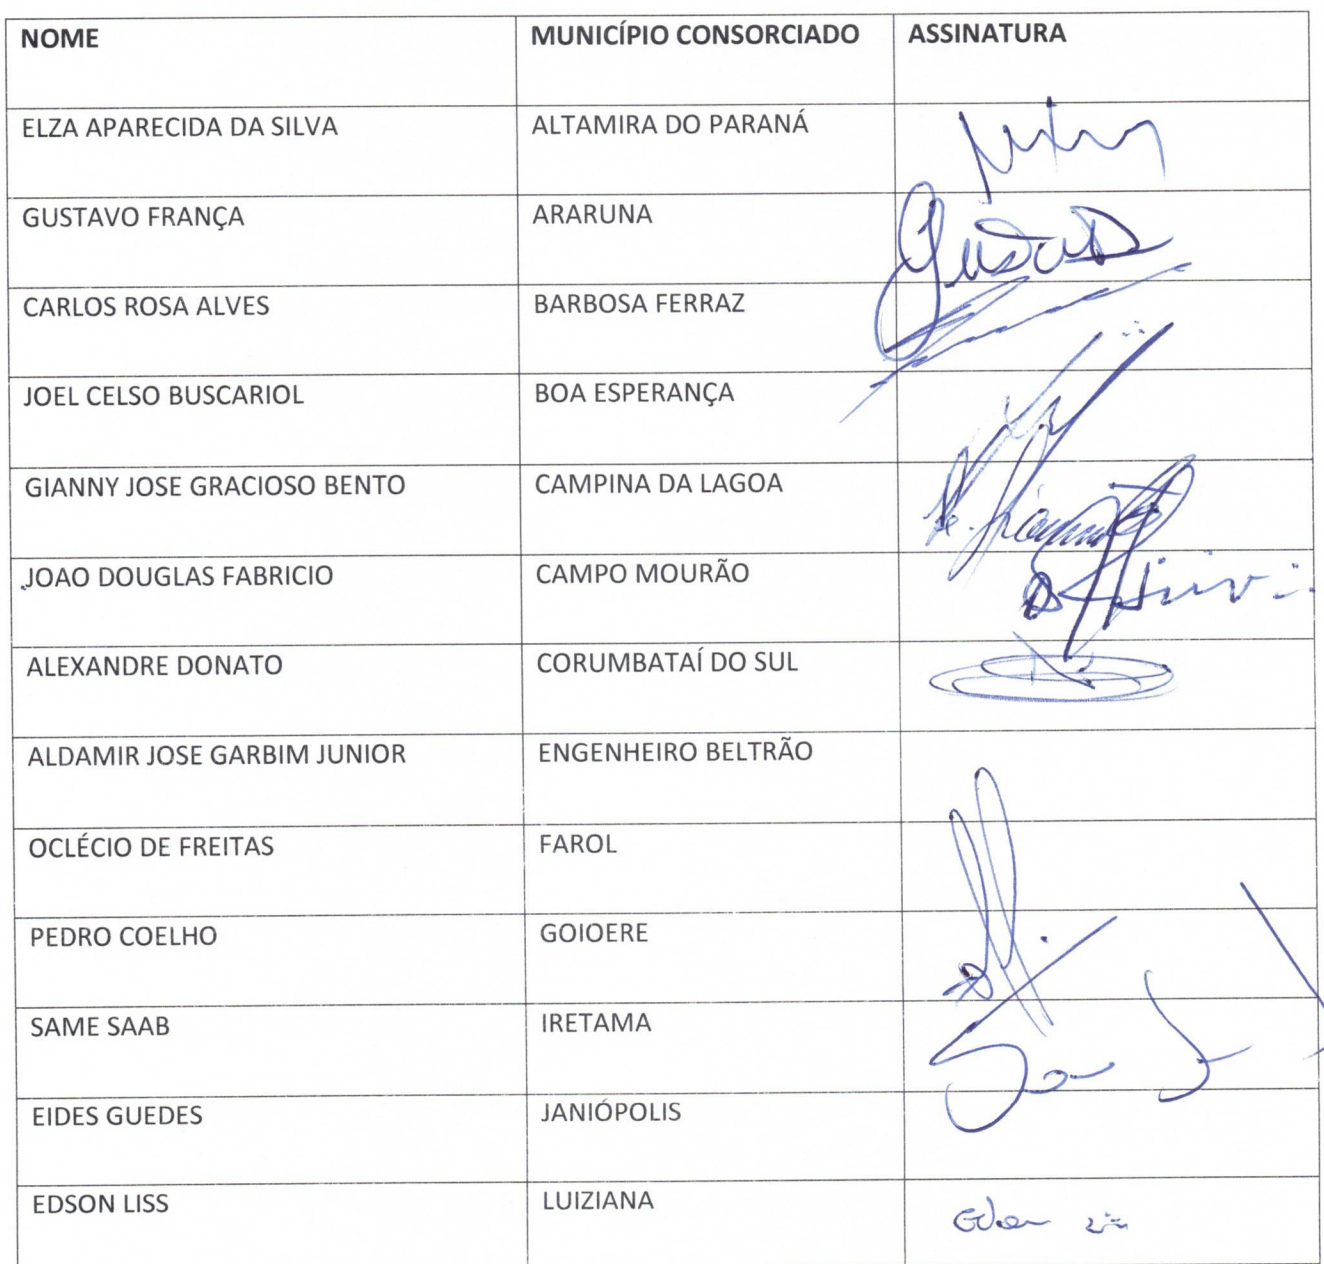 NOME MUNICÍPIO CONSORCIADO ASSINATURA
ELZA APARECIDA DA SILVA ALTAMIRA DO PARANÁ
GUSTAVO FRANÇA ARARUNA
CARLOS ROSA ALVES BARBOSA FERRAZ
JOEL CELSO BUSCARIOL BOA ESPERANÇA
GIANNY JOSE GRACIOSO BENTO CAMPINA DA LAGOA
JOAO DOUGLAS FABRICIO CAMPO MOURÃO
ALEXANDRE DONATO CORUMBATAÍ DO SUL
ALDAMIR JOSE GARBIM JUNIOR ENGENHEIRO BELTRÃO
OCLÉCIO DE FREITAS FAROL
PEDRO COELHO GOIOERE
SAME SAAB IRETAMA
EIDES GUEDES JANIÓPOLIS
EDSON LISS LUIZIANA